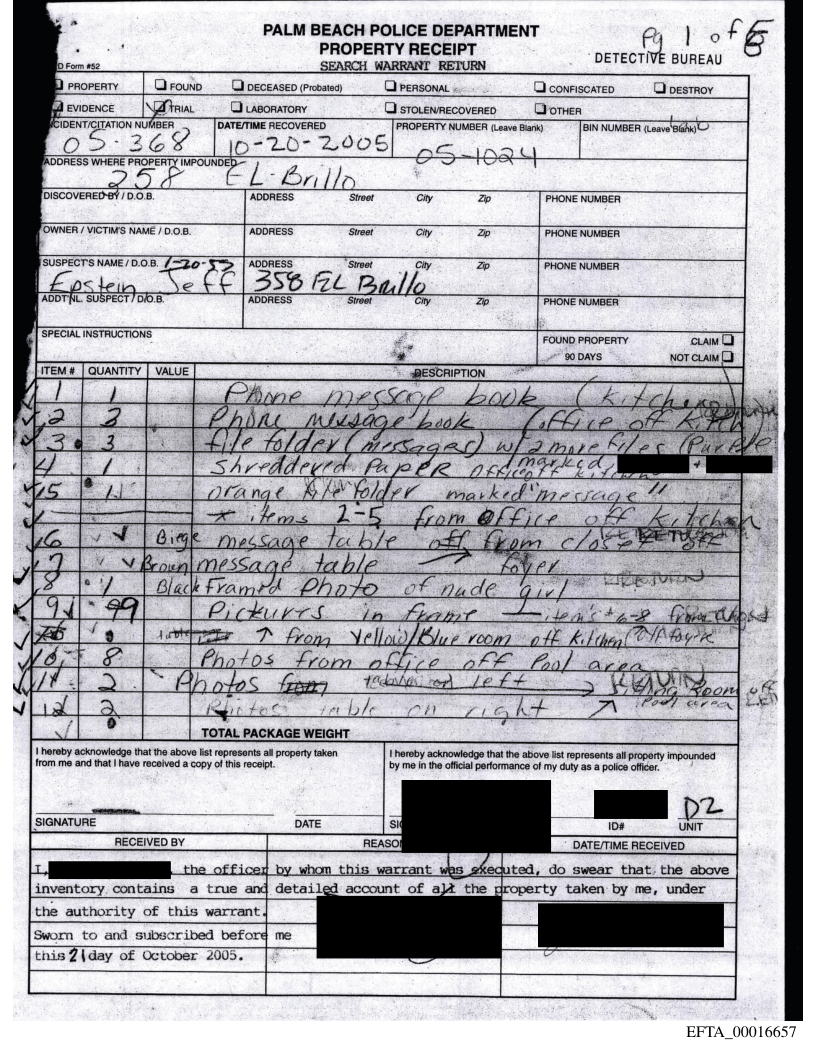 PALM BEACH POLICE DEPARTMENT
PROPERTY RECEIPT
SEARCH WARRANT RETURN
Pg 1 of 5
DETECTIVE BUREAU
D Form #52
PROPERTY FOUND DECEASED (Probated) PERSONAL CONFISCATED DESTROY
EVIDENCE TRIAL LABORATORY STOLEN/RECOVERED OTHER
CIDENT/CITATION NUMBER DATE/TIME RECOVERED PROPERTY NUMBER (Leave Blank) BIN NUMBER (Leave Blank)
05-368 10-20-2005 05-1024
ADDRESS WHERE PROPERTY IMPOUNDED
258 EL-Brillo
DISCOVERED BY / D.O.B. ADDRESS Street City Zip PHONE NUMBER
OWNER / VICTIM'S NAME / D.O.B. ADDRESS Street City Zip PHONE NUMBER
SUSPECT'S NAME / D.O.B. 1-20-53 ADDRESS Street City Zip PHONE NUMBER
Epstein Jeff 358 EL Brillo
ADDT'NL. SUSPECT / D.O.B. ADDRESS Street City Zip PHONE NUMBER
SPECIAL INSTRUCTIONS
FOUND PROPERTY CLAIM
90 DAYS NOT CLAIM
ITEM # QUANTITY VALUE DESCRIPTION
1 1 Phone message book (kitchen)
2 Phone message book (office off kitch
3 3 file folder (messages) w/ 2 more files (Purple
4 1 Shreddered PAPER office off kitchen marked +
5 1 orange file folder marked "message"
* items 2-5 from office off kitchen
6 Biege message table off from closet off
7 Brown message table foyer
8 1 Black Framed Photo of nude girl
9 Pictures in frame — item's # 6-8 from
↑ from Yellow/Blue room off kitchen
10 8 Photos from office off Pool area
11 2 Photos from left Sitting Room off
12 2 Photos table on right Pool area
TOTAL PACKAGE WEIGHT
I hereby acknowledge that the above list represents all property taken
from me and that I have received a copy of this receipt.
I hereby acknowledge that the above list represents all property impounded
by me in the official performance of my duty as a police officer.
D2
SIGNATURE DATE SI ID# UNIT
RECEIVED BY REASON DATE/TIME RECEIVED
I, the officer by whom this warrant was executed, do swear that the above
inventory contains a true and detailed account of all the property taken by me, under
the authority of this warrant.
Sworn to and subscribed before me
this 21 day of October 2005.
EFTA_00016657